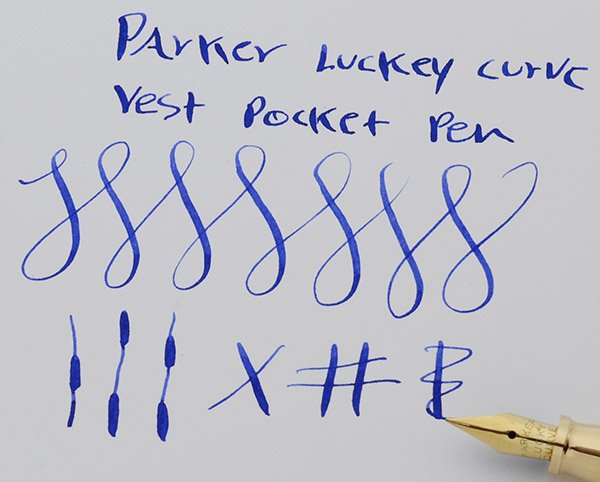 Parker Luckey Curve
Vest Pocket Pen
X #